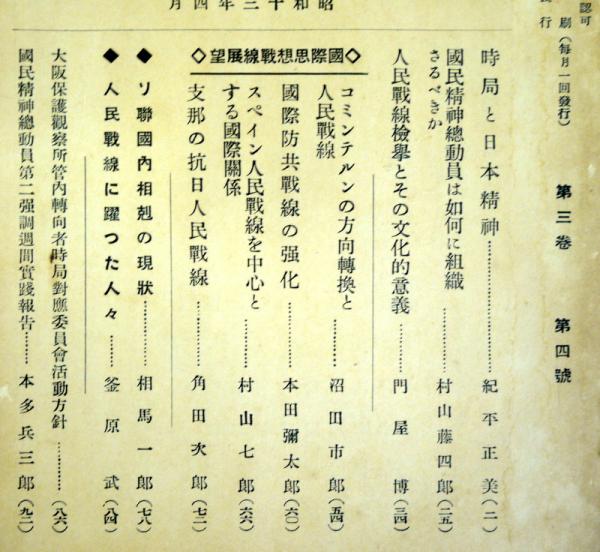 認可
刷（每月一回發行）
行
第三卷　第四號
昭和十三年四月
時局と日本精神…………紀平正美（二）
國民精神總動員は如何に組織
さるべきか………村山藤四郎（二五）
人民戰線檢擧とその文化的意義……門屋博（三四）
◇國際思想戰線展望◇
コミンテルンの方向轉換と
人民戰線………沼田市郎（五四）
國際防共戰線の强化………本田彌太郎（六〇）
スペイン人民戰線を中心と
する國際關係………村山七郎（六六）
支那の抗日人民戰線………角田次郎（七二）
◆ソ聯國內相剋の現狀………相馬一郎（七八）
◆人民戰線に躍つた人々……釜原武（八四）
大阪保護觀察所管內轉向者時局對應委員會活動方針…………（八六）
國民精神總動員第二强調週間實踐報告………本多兵三郎（九二）